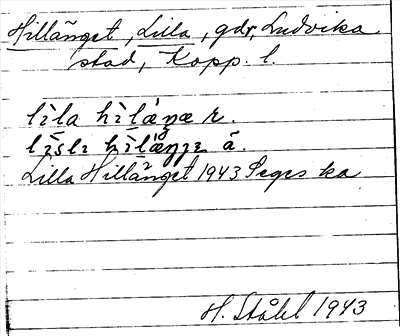 Hillänget, Lilla, gdr, Ludvika
stad, Kopp. l.
lìla hìláŋæ r.
lìslɪ hìláŋɪ ä.
Lilla Hillänget 1943 Seges ka
H. Ståhl 1943